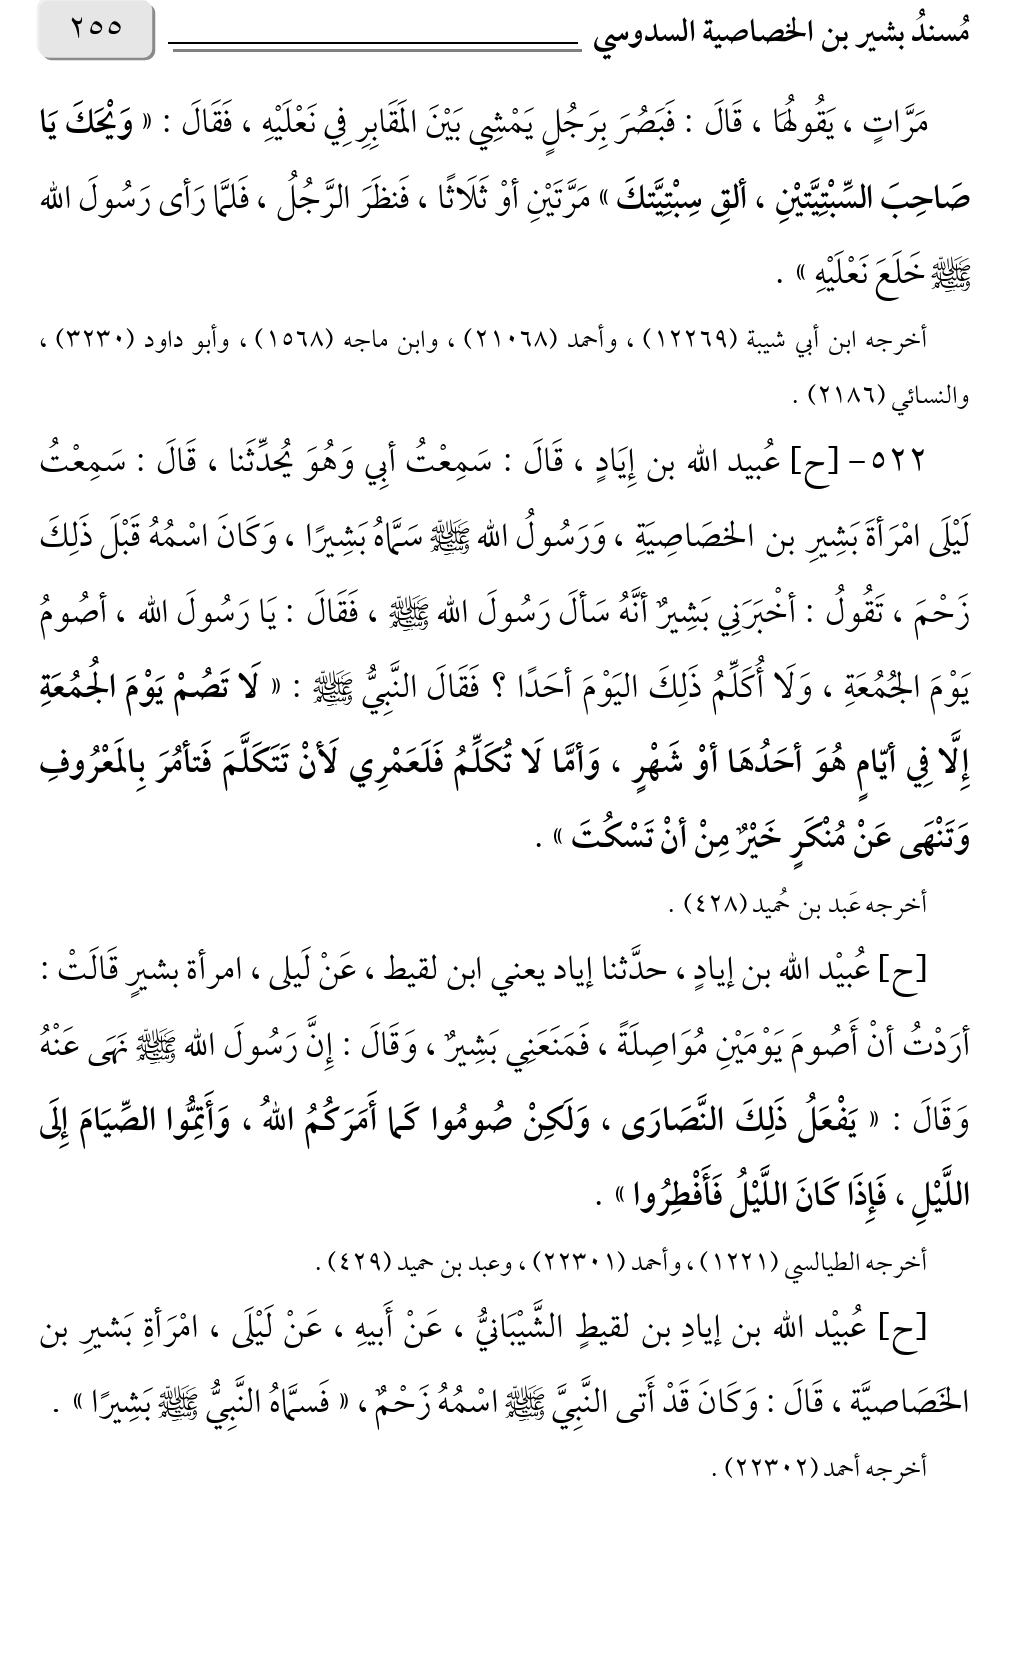 مُسندُ بشير بن الخصاصية السدوسي ٢٥٥
مَرَّاتٍ ، يَقُولُهَا ، قَالَ : فَبَصُرَ بِرَجُلٍ يَمْشِي بَيْنَ المَقَابِرِ فِي نَعْلَيْهِ ، فَقَالَ : « وَيْحَكَ يَا
صَاحِبَ السِّبْتِيَّتَيْنِ ، ألقِ سِبْتِيَّتكَ » مَرَّتَيْنِ أوْ ثَلَاثًا ، فَنظَرَ الرَّجُلُ ، فَلمَّا رَأى رَسُولَ الله
ﷺ خَلَعَ نَعْلَيْهِ » .
أخرجه ابن أبي شيبة (١٢٢٦٩) ، وأحمد (٢١٠٦٨) ، وابن ماجه (١٥٦٨) ، وأبو داود (٣٢٣٠) ،
والنسائي (٢١٨٦) .
٥٢٢- [ح] عُبيد الله بن إِيَادٍ ، قَالَ : سَمِعْتُ أبِي وَهُوَ يُحدِّثَنا ، قَالَ : سَمِعْتُ
لَيْلَى امْرَأةَ بَشِيرِ بن الخصَاصِيَةِ ، وَرَسُولُ الله ﷺ سَمَّاهُ بَشِيرًا ، وَكَانَ اسْمُهُ قَبْلَ ذَلِكَ
زَحْمَ ، تَقُولُ : أخْبَرَنِي بَشِيرٌ أنَّهُ سَألَ رَسُولَ الله ﷺ ، فَقَالَ : يَا رَسُولَ الله ، أصُومُ
يَوْمَ الجُمُعَةِ ، وَلَا أُكَلِّمُ ذَلِكَ اليَوْمَ أحَدًا ؟ فَقَالَ النَّبِيُّ ﷺ : « لَا تَصُمْ يَوْمَ الجُمُعَةِ
إِلَّا فِي أيّامٍ هُوَ أحَدُهَا أوْ شَهْرٍ ، وَأمَّا لَا تُكَلِّمُ فَلَعَمْرِي لَأنْ تَتَكَلَّمَ فَتأمُرَ بِالمَعْرُوفِ
وَتَنْهَى عَنْ مُنْكَرٍ خَيْرٌ مِنْ أنْ تَسْكُتَ » .
أخرجه عَبد بن حُميد (٤٢٨) .
[ح] عُبيْد الله بن إيادٍ ، حدَّثنا إياد يعني ابن لقيط ، عَنْ لَيلى ، امرأة بشيرٍ قَالَتْ :
أرَدْتُ أنْ أَصُومَ يَوْمَيْنِ مُوَاصِلَةً ، فَمَنَعَنِي بَشِيرٌ ، وَقَالَ : إِنَّ رَسُولَ الله ﷺ نَهَى عَنْهُ
وَقَالَ : « يَفْعَلُ ذَلِكَ النَّصَارَى ، وَلَكِنْ صُومُوا كَما أَمَرَكُمُ اللهُ ، وَأَتِمُّوا الصِّيَامَ إِلَى
اللَّيْلِ ، فَإِذَا كَانَ اللَّيْلُ فَأَفْطِرُوا » .
أخرجه الطيالسي (١٢٢١) ، وأحمد (٢٢٣٠١) ، وعبد بن حميد (٤٢٩) .
[ح] عُبيْد الله بن إيادِ بن لقيطٍ الشَّيْبَانيُّ ، عَنْ أَبيهِ ، عَنْ لَيْلَى ، امْرَأةِ بَشيرِ بن
الخَصَاصيَّة ، قَالَ : وَكَانَ قَدْ أَتى النَّبِيَّ ﷺ اسْمُهُ زَحْمٌ ، « فَسمَّاهُ النَّبِيُّ ﷺ بَشِيرًا » .
أخرجه أحمد (٢٢٣٠٢) .